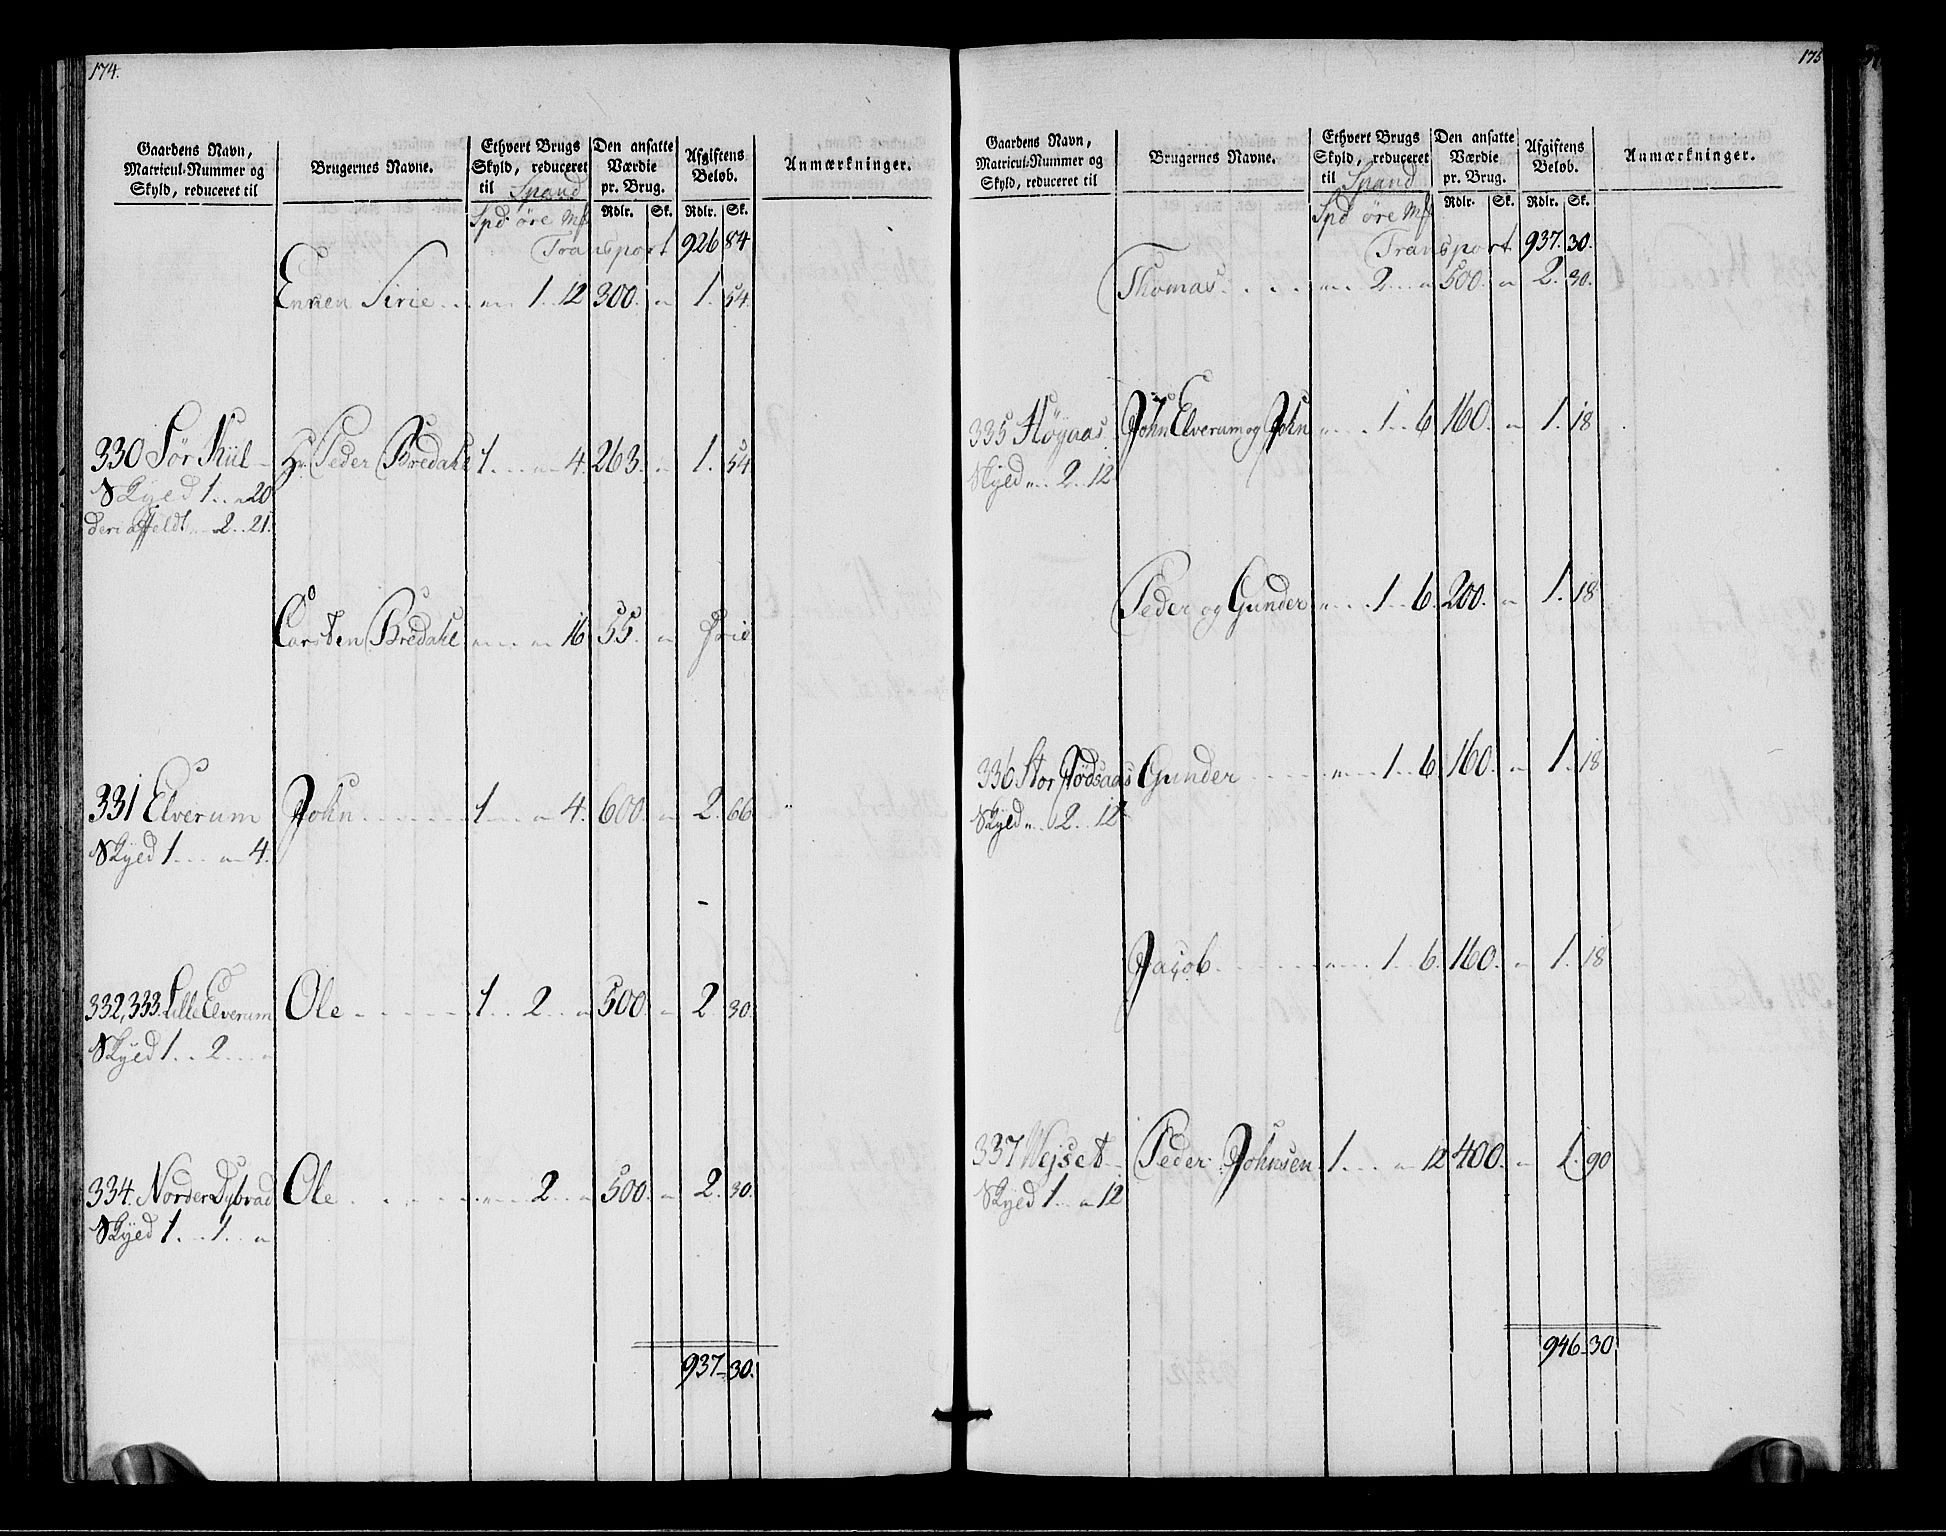 174.
Gaardens Navn, Matricul-Nummer og Skyld, reduceret til
Brugernes Navne.
Ethvert Brugs Skyld, reduceret til Spand
Den ansatte Værdie pr. Brug.
Afgiftens Beløb.
Anmærkninger.
Spd øre Mf Rdlr. Sk. Rdlr. Sk.
Transport 926 84
Enken Sirie 1 12 300. 1. 54.
330 Sør Kül Hr Peder Bredahl 1 4. 263. 1. 54
Skyld 1 20
deri affeldt 2 21.
Carsten Bredahl 16 55 frie
331 Elverum John 1 4. 600. 2. 66
Skyld 1 4.
332, 333. Lille Elverum Ole 1 2 500 2 30
Skyld 1 2
334. Norder Dybvad Ole 2 500. 2. 30.
Skyld 1 1
937 30.
175
Gaardens Navn, Matricul-Nummer og Skyld, reduceret til
Brugernes Navne.
Ethvert Brugs Skyld, reduceret til Spand
Den ansatte Værdie pr. Brug.
Afgiftens Beløb.
Anmærkninger.
Spd øre Mf Rdlr. Sk. Rdlr. Sk.
Transport 937. 30.
Thomas 2 500. 2. 30.
335 Høyaas John Elverum og John 1 6 160. 1. 18
Skyld 2 12
Peder og Gunder 1 6. 200. 1. 18
336 Stor Gunder 1 6. 160. 1. 18
Skyld 2 12
Jacob 1 6. 160. 1. 18
337 Wejset Peder Johnsen 1 12 400. 1. 90
Skyld 1 12
946 30